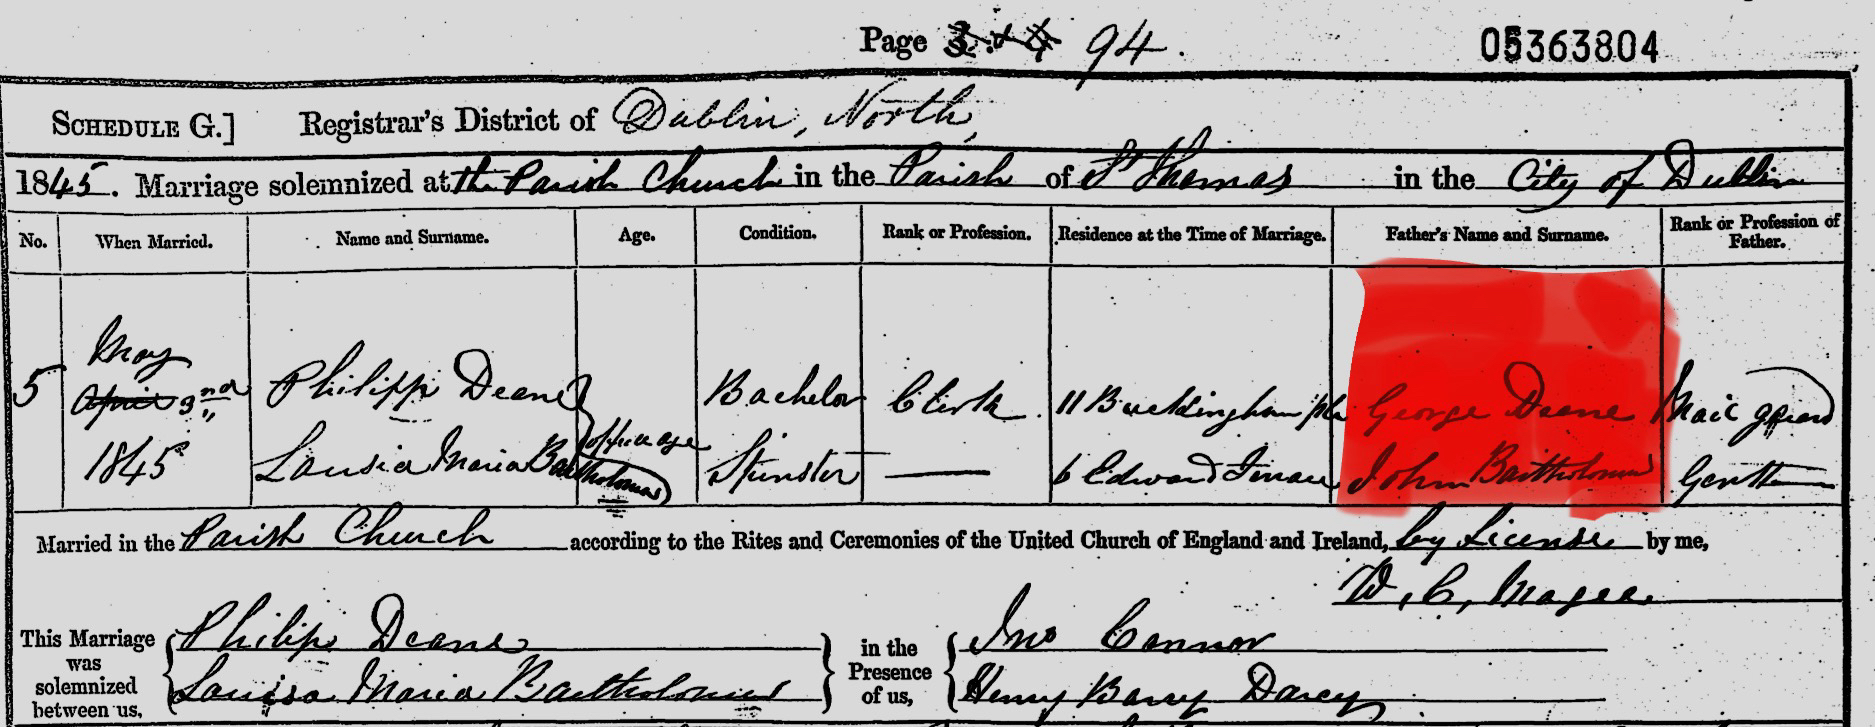 Page 3 & 4 94.
05363804
SCHEDULE G.] Registrar's District of Dublin, North,
1845. Marriage solemnized at the Parish Church in the Parish of St Thomas in the City of Dublin
No. When Married. Name and Surname. Age. Condition. Rank or Profession. Residence at the Time of Marriage. Father's Name and Surname. Rank or Profession of Father.
May
5 April 3nd Philipp Deane Bachelor Clerk 11 Buckingham plc George Deane Mail guard
1845 Louisa Maria Bartholomew of full age Spinster 6 Edward Terrace John Bartholomew Gentn
Married in the Parish Church according to the Rites and Ceremonies of the United Church of England and Ireland, by License by me,
W. C. Magee
This Marriage was solemnized between us, Philip Deane in the Presence of us, Jno Connor
Louisa Maria Bartholomew Henry Barry Darcy